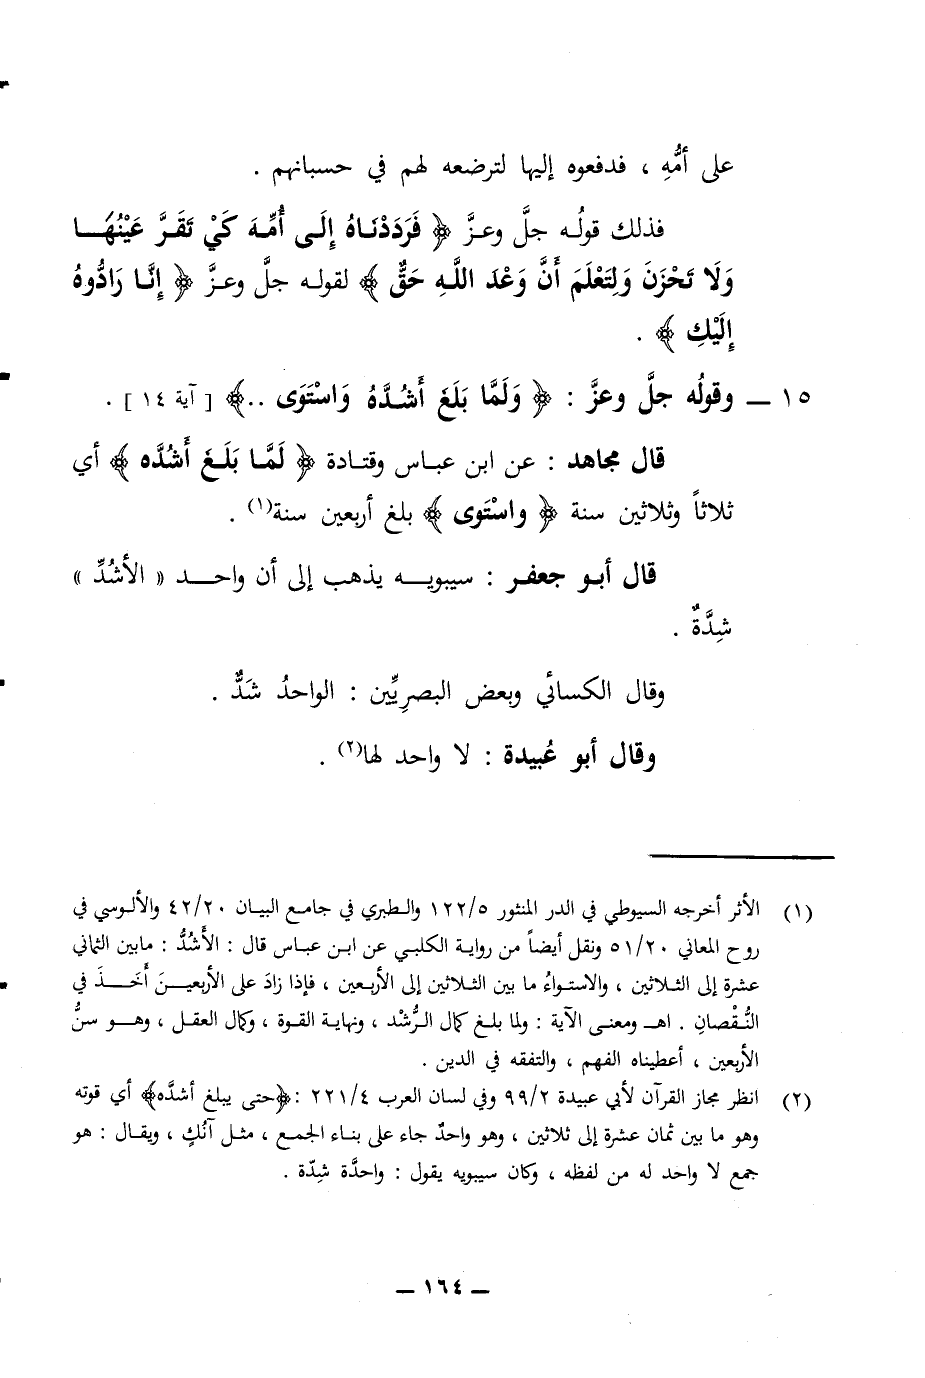 على أمُّهِ ، فدفعوه إليها لترضعه لهم في حسبانهم .
فذلك قولُه جلَّ وعزَّ ﴿ فَرَدَدْنَاهُ إِلَى أُمِّهَ كَيْ تَقَرَّ عَيْنُهَا
وَلَا تَحْزَنَ وَلِتَعْلَمَ أَنَّ وَعْدَ اللهِ حَقٌّ ﴾ لقوله جلَّ وعزَّ ﴿ إنَّا رَادُّوهُ
إِلَيْكِ ﴾ .
١٥ ــ وقولُه جلَّ وعزَّ : ﴿ وَلَمَّا بَلَغَ أَشُدَّهُ وَاسْتَوَى ..﴾ [ آية ١٤ ] .
قال مجاهد : عن ابن عباس وقتادة ﴿ لَمَّا بَلَغَ أَشُدَّه ﴾ أي
ثلاثاً وثلاثين سنة ﴿ واسْتَوى ﴾ بلغ أربعين سنة(١) .
قال أبو جعفر : سيبويه يذهب إلى أن واحد « الأشُدِّ »
شِدَّةٌ .
وقال الكسائي وبعض البصرِيِّين : الواحدُ شَدٌّ .
وقال أبو عُبيدة : لا واحد لها(٢) .
(١) الأثر أخرجه السيوطي في الدر المنثور ١٢٢/٥ والطبري في جامع البيان ٤٢/٢٠ والألوسي في
روح المعاني ٥١/٢٠ ونقل أيضاً من رواية الكلبي عن ابن عباس قال : الأَشُدُّ : مابين الثماني
عشرة إلى الثلاثين ، والاستواءُ ما بين الثلاثين إلى الأربعين ، فإذا زادَ على الأربعين أَخَذَ في
النُّقْصانِ . اهـ ومعنى الآية : ولما بلغ كمال الرُّشْد ، ونهاية القوة ، وكمال العقل ، وهو سنُّ
الأربعين ، أعطيناه الفهم ، والتفقه في الدين .
(٢) انظر مجاز القرآن لأبي عبيدة ٩٩/٢ وفي لسان العرب ٢٢١/٤ : ﴿حتى يبلغ أشدَّه﴾ أي قوته
وهو ما بين ثمان عشرة إلى ثلاثين ، وهو واحدٌ جاء على بناء الجمع ، مثل آنُكٍ ، ويقال : هو
جمع لا واحد له من لفظه ، وكان سيبويه يقول : واحدَّة شِدّة .
ــ ١٦٤ ــ